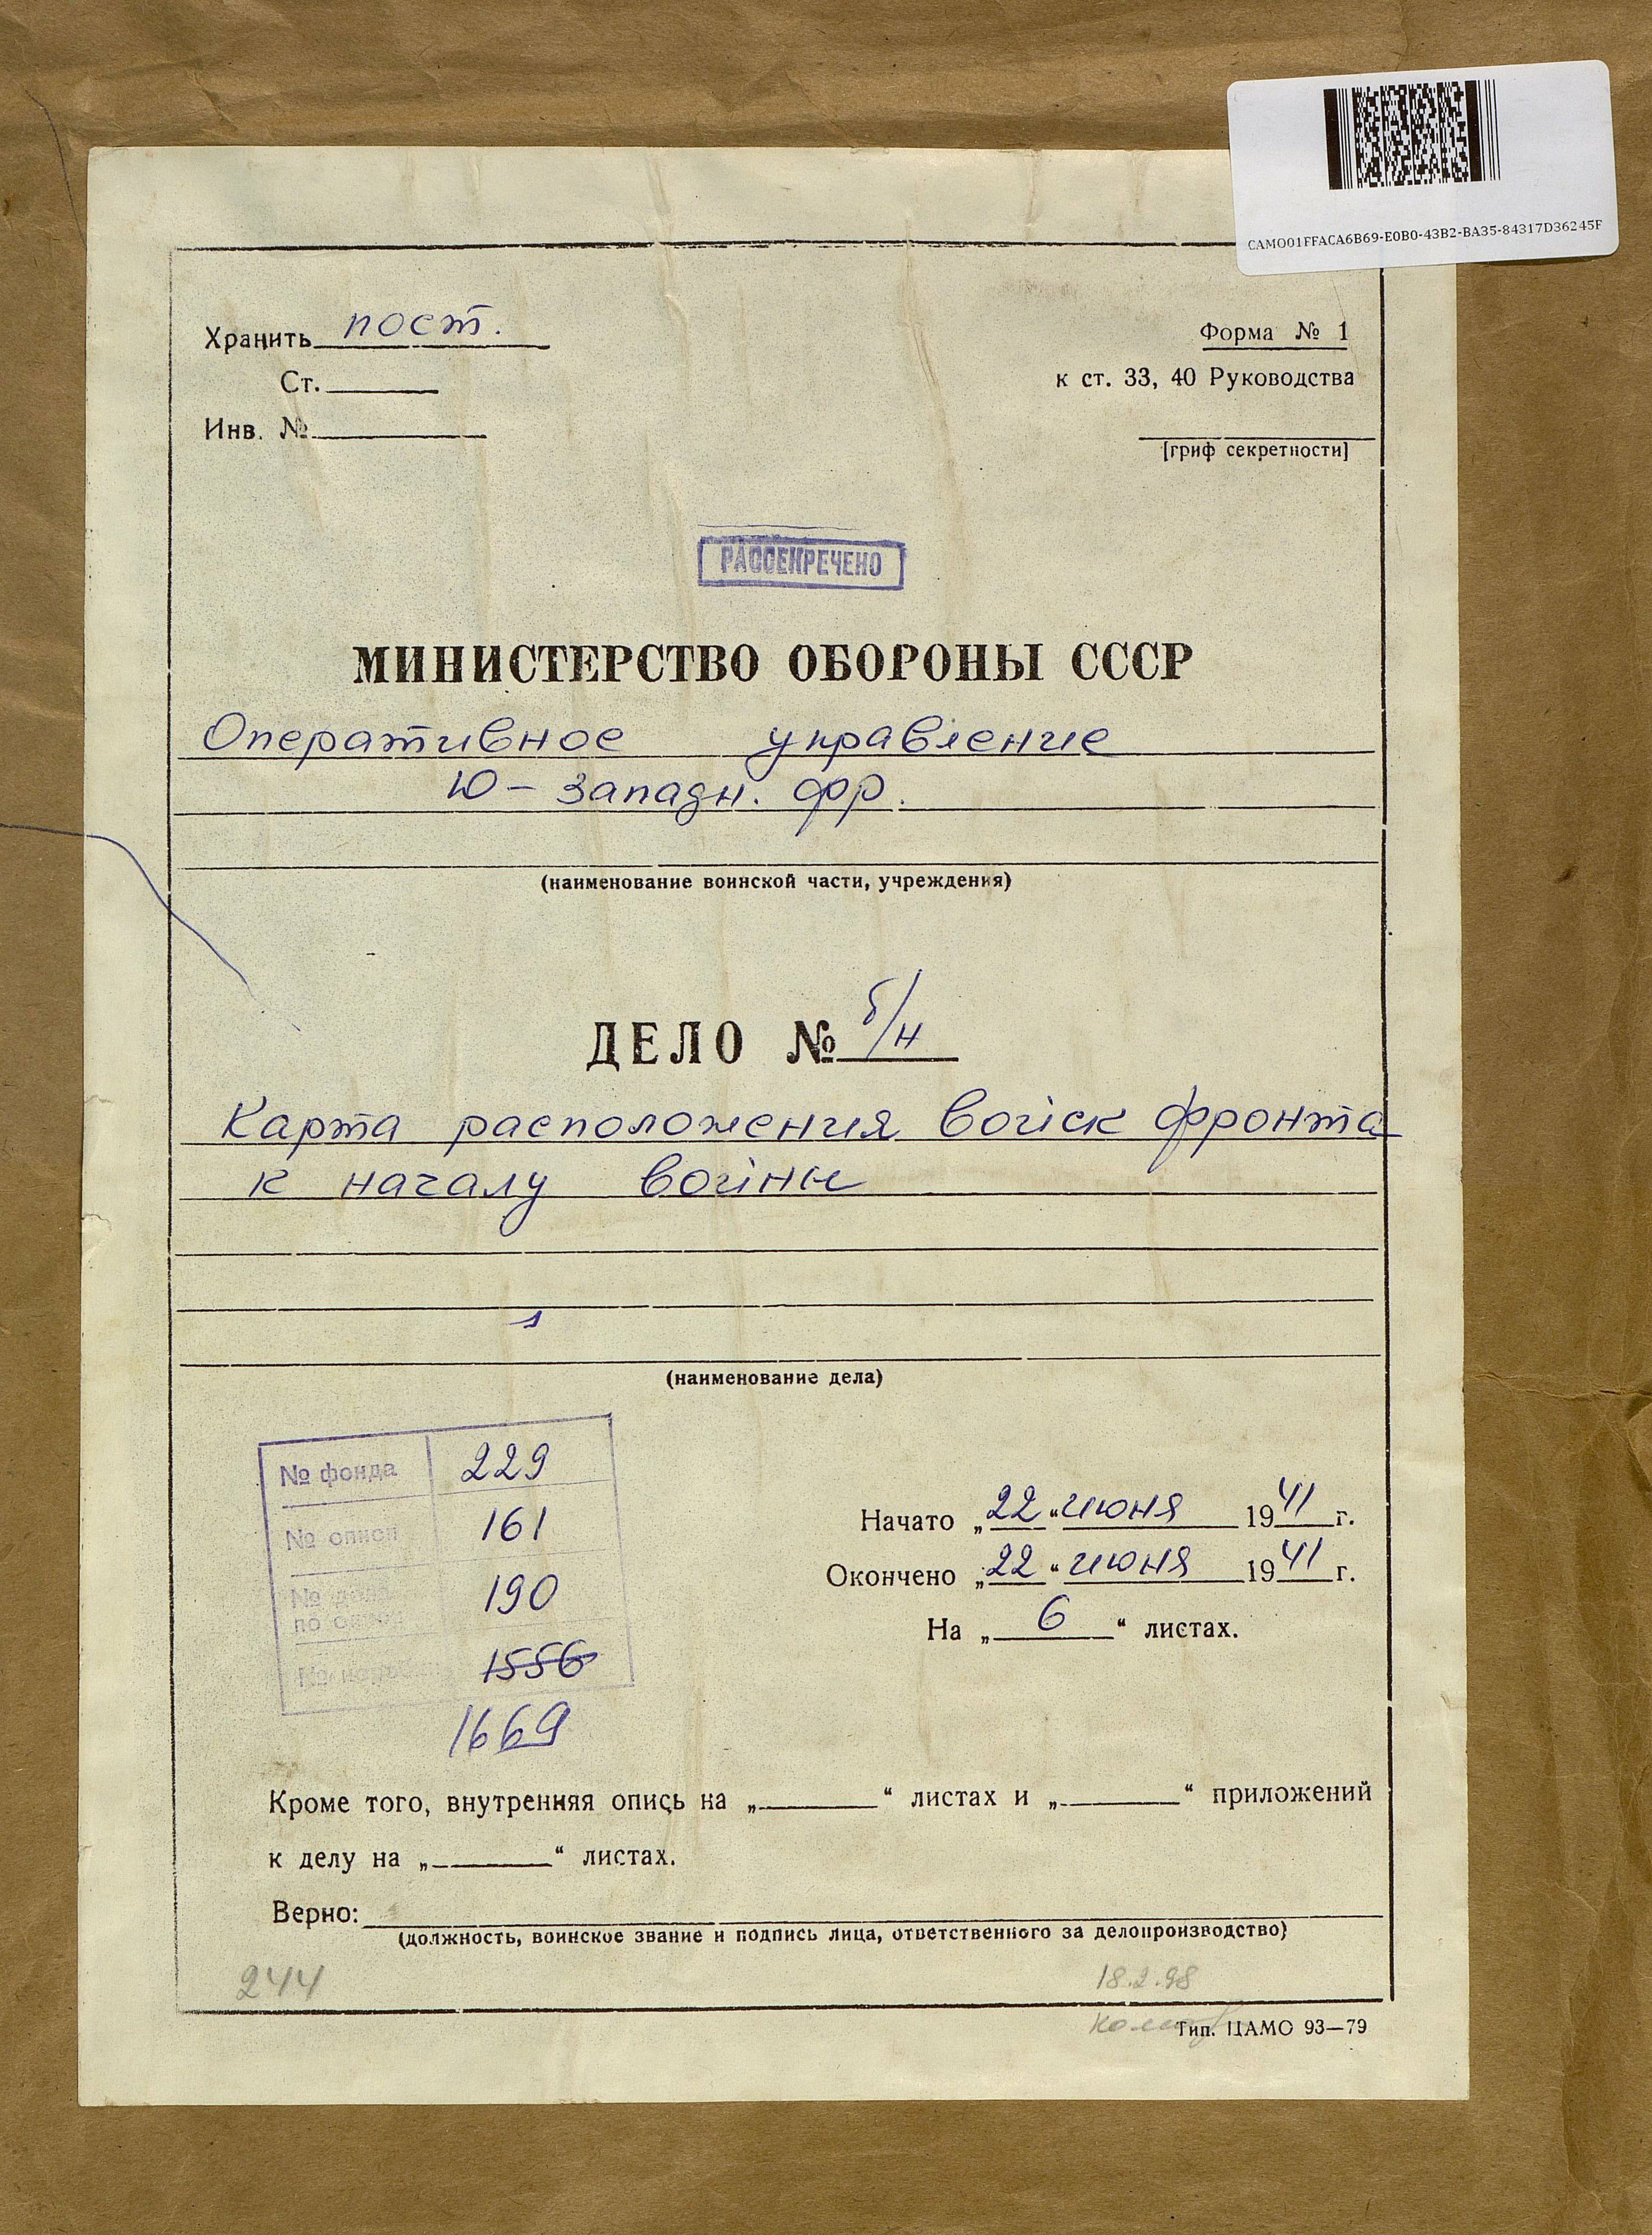 CAMO01FFACA6B69-E0B0-43B2-BA35-84317D36245F
Хранить пост.
Ст.
Инв. №
Форма № 1
к ст. 33, 40 Руководства
[гриф секретности]
РАССЕКРЕЧЕНО
МИНИСТЕРСТВО ОБОРОНЫ СССР
Оперативное управление
Ю-западн. фр.
(наименование воинской части, учреждения)
ДЕЛО № б/н
Карта расположения войск фронта
к началу войны
(наименование дела)
№ фонда 229
№ описи 161
№ дела по описи 190
1556
1669
Начато „22“ июня 1941 г.
Окончено „22“ июня 1941 г.
На „6“ листах.
Кроме того, внутренняя опись на „ “ листах и „ “ приложений
к делу на „ “ листах.
Верно:
(должность, воинское звание и подпись лица, ответственного за делопроизводство)
244
18.2.98
Тип. ЦАМО 93—79